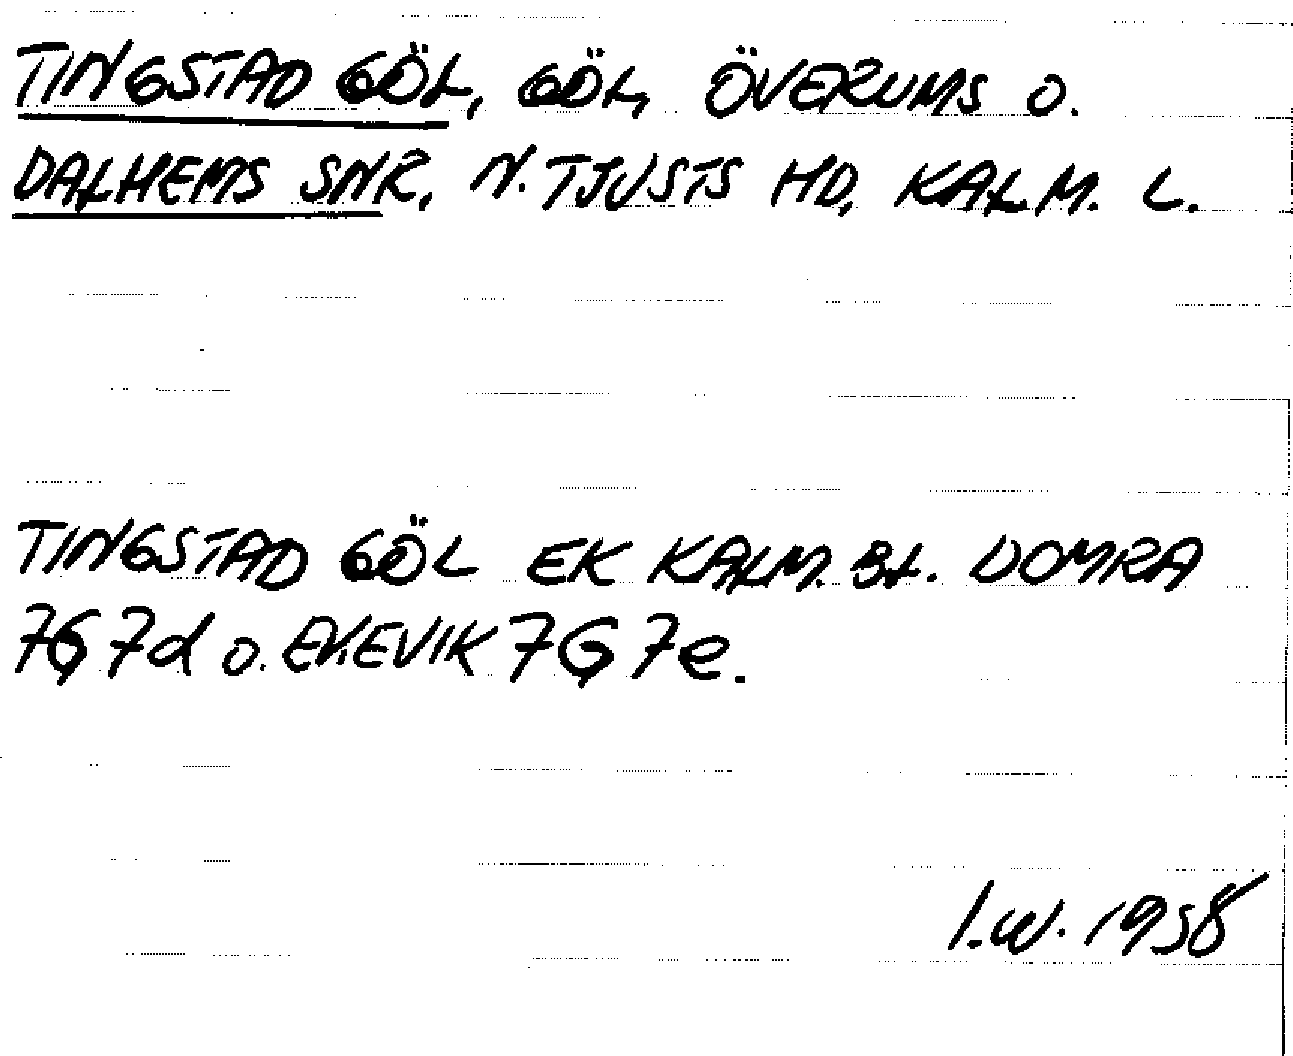 TINGSTAD GÖL, GÖL, ÖVERUMS O.
DALHEMS SNR, N. TJUSTS HD, KALM. L.
TINGSTAD GÖL EK KALM. BL. DOMRA
7G 7d O. EKEVIK 7G 7e.
I.W. 1958